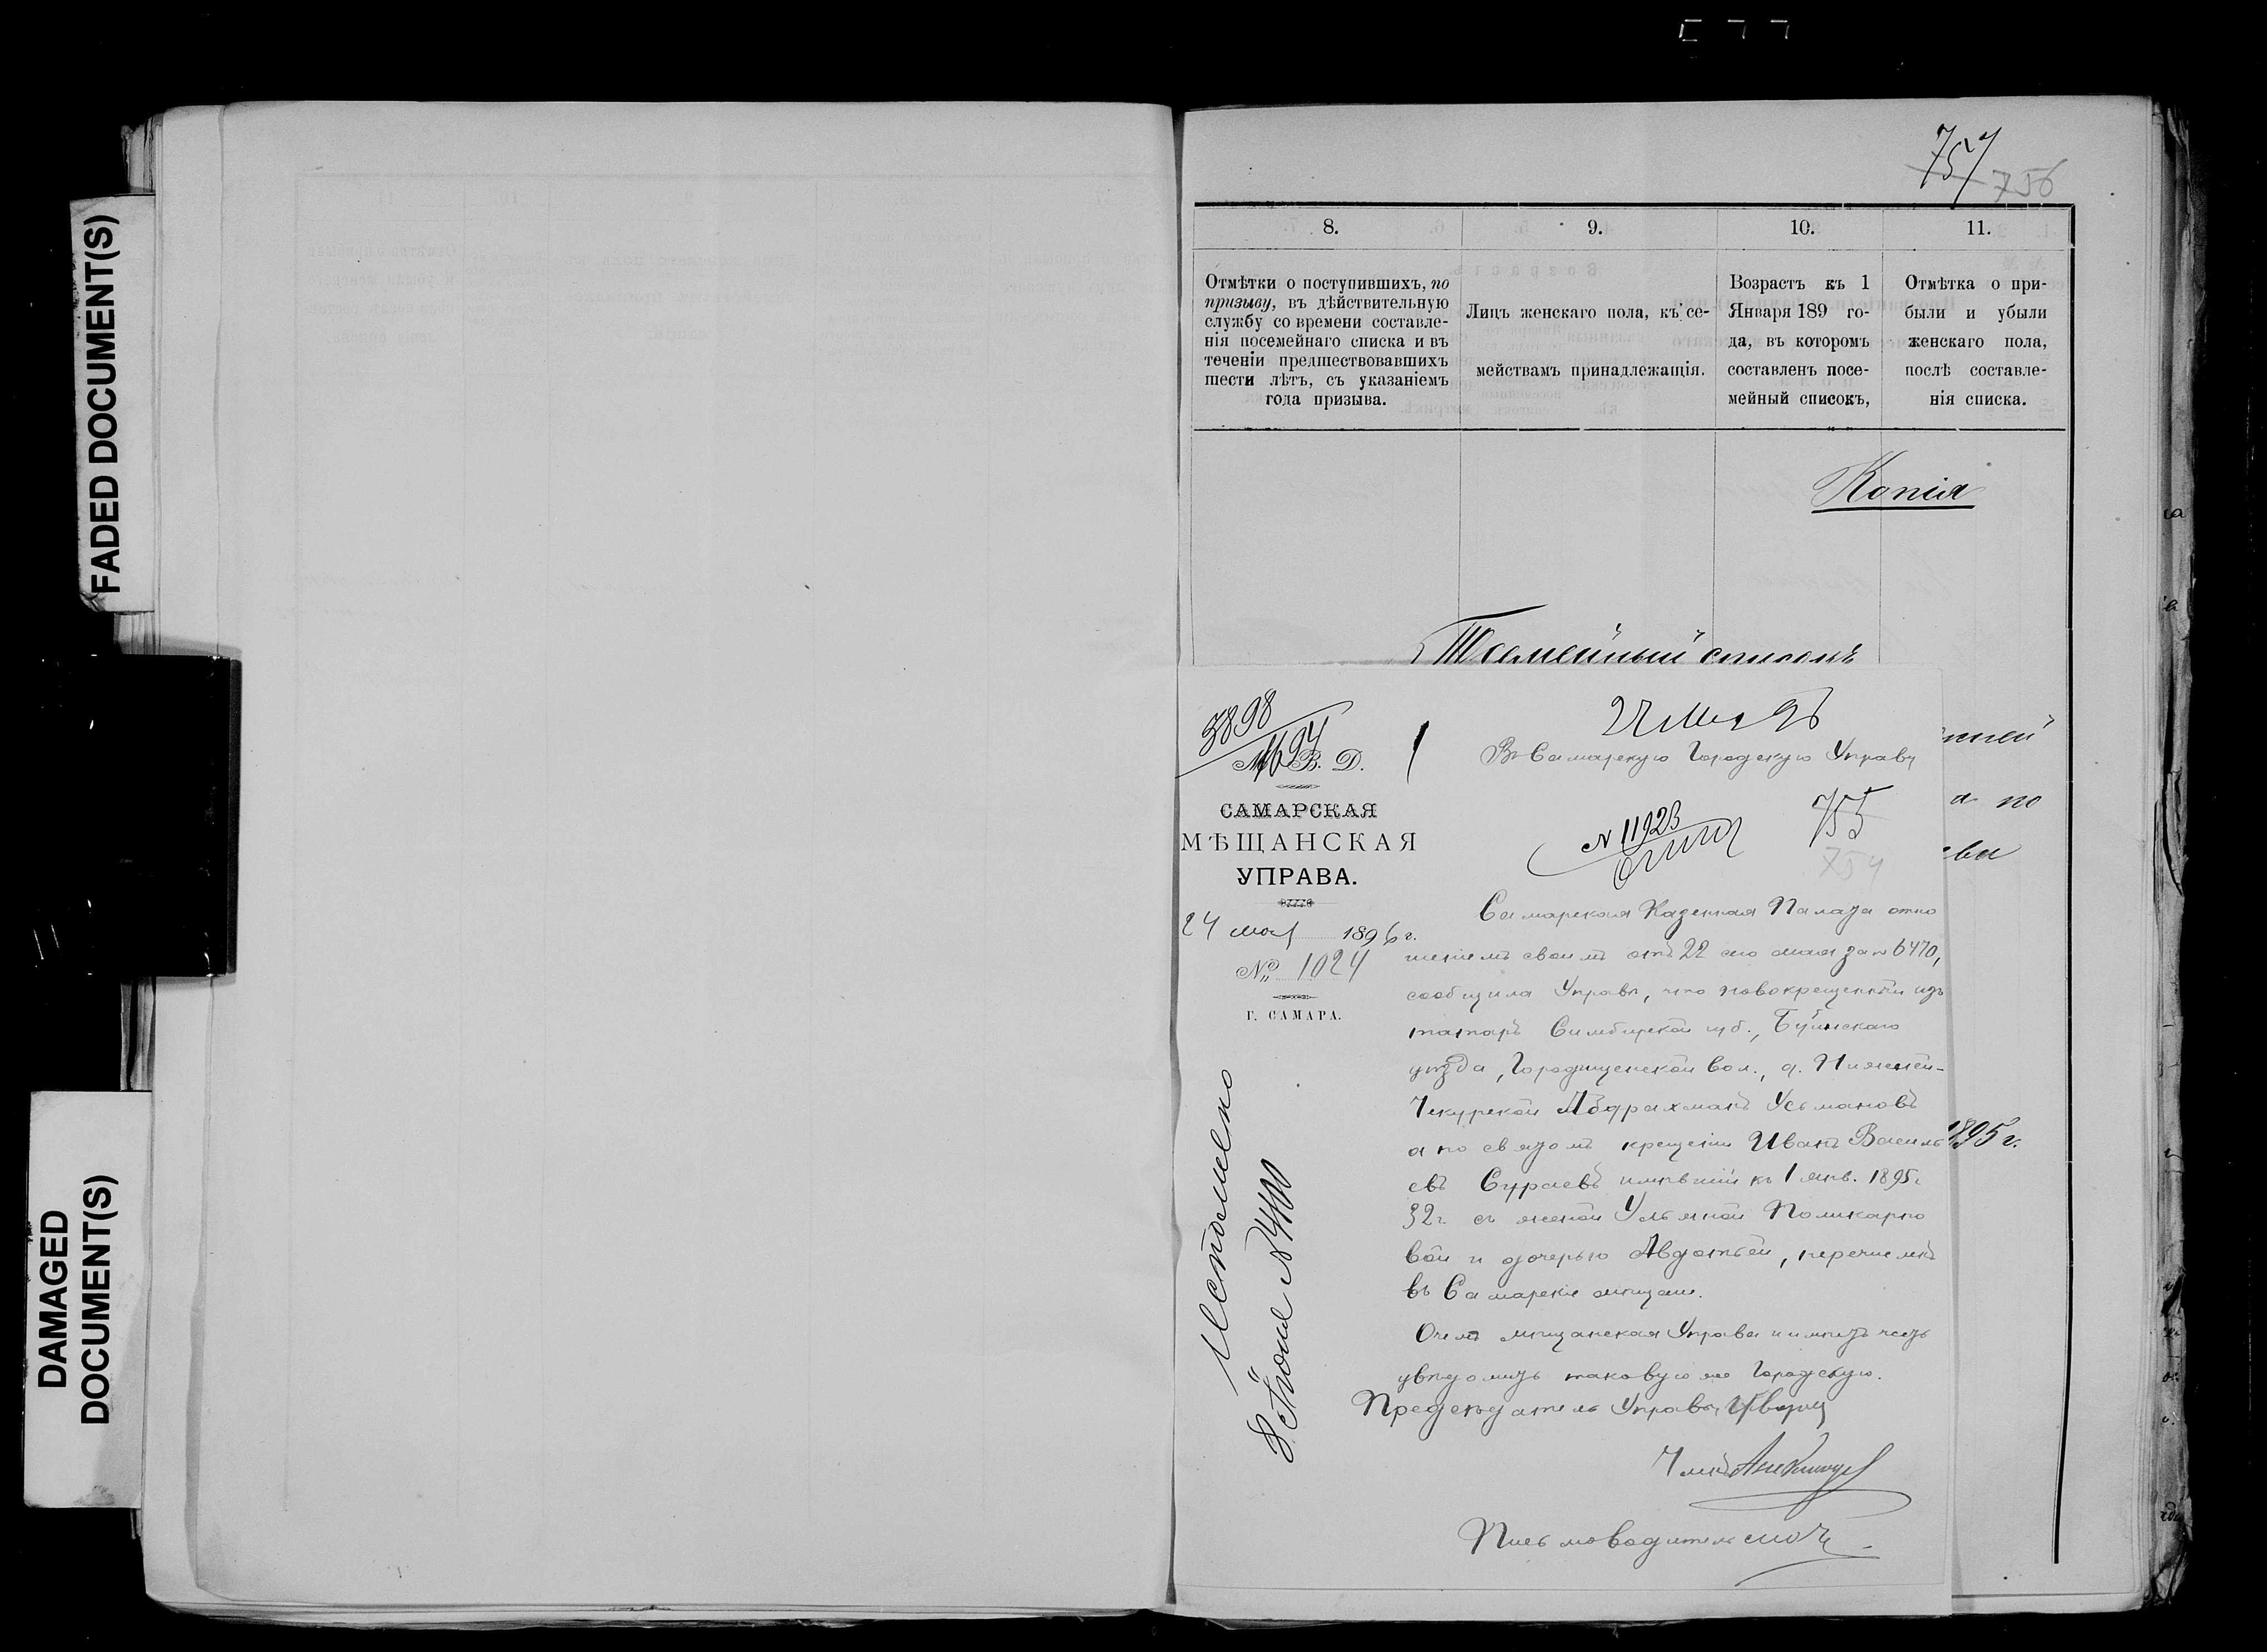 FADED DOCUMENT(S)
DAMAGED
DOCUMENT(S)
757 756
8.
Отмѣтки о поступившихъ, по
призыву, въ дѣйствительную
службу со времени составле-
нія посемейнаго списка и въ
теченіи предшествовавшихъ
шести лѣтъ, съ указаніемъ
года призыва.
9.
Лицъ женскаго пола, къ се-
мействамъ принадлежащія.
10.
Возрастъ къ 1
Января 189 го-
да, въ которомъ
составленъ посе-
мейный списокъ,
11.
Отмѣтка о при-
были и убыли
женскаго пола,
послѣ составле-
нія списка.
Копія
списокъ
а по
1895 г.
3898
М. В. Д.
САМАРСКАЯ
МѢЩАНСКАЯ
УПРАВА.
24 мая 1896 г.
№ 1024
Г. САМАРА.
Исполнено
8 Іюня № 4400
27 Мая 96
Въ Самарскую Городскую Управу
N 11923
755
754
Самарская Казенная Палата отно
шеніемъ своимъ отъ 22 сего мая за № 6470,
сообщила Управѣ, что новокрещенный изъ
татаръ Симбирской губ., Буинскаго
уѣзда, Городищенской вол., д. Нижней-
Чекурской Абдрахманъ Усмановъ
а по святомъ крещеніи Иванъ Василь
евъ Сураевъ имѣвшій къ 1 янв. 1895 г.
32 г. съ женой Ульяной Поликарпо
вой и дочерью Авдотьей, перечисленъ
въ Самарскіе мѣщане.
О чемъ мѣщанская Управа и имѣетъ честь
увѣдомить таковую же Городскую.
Предсѣдатель Управы
Членъ
Письмоводитель